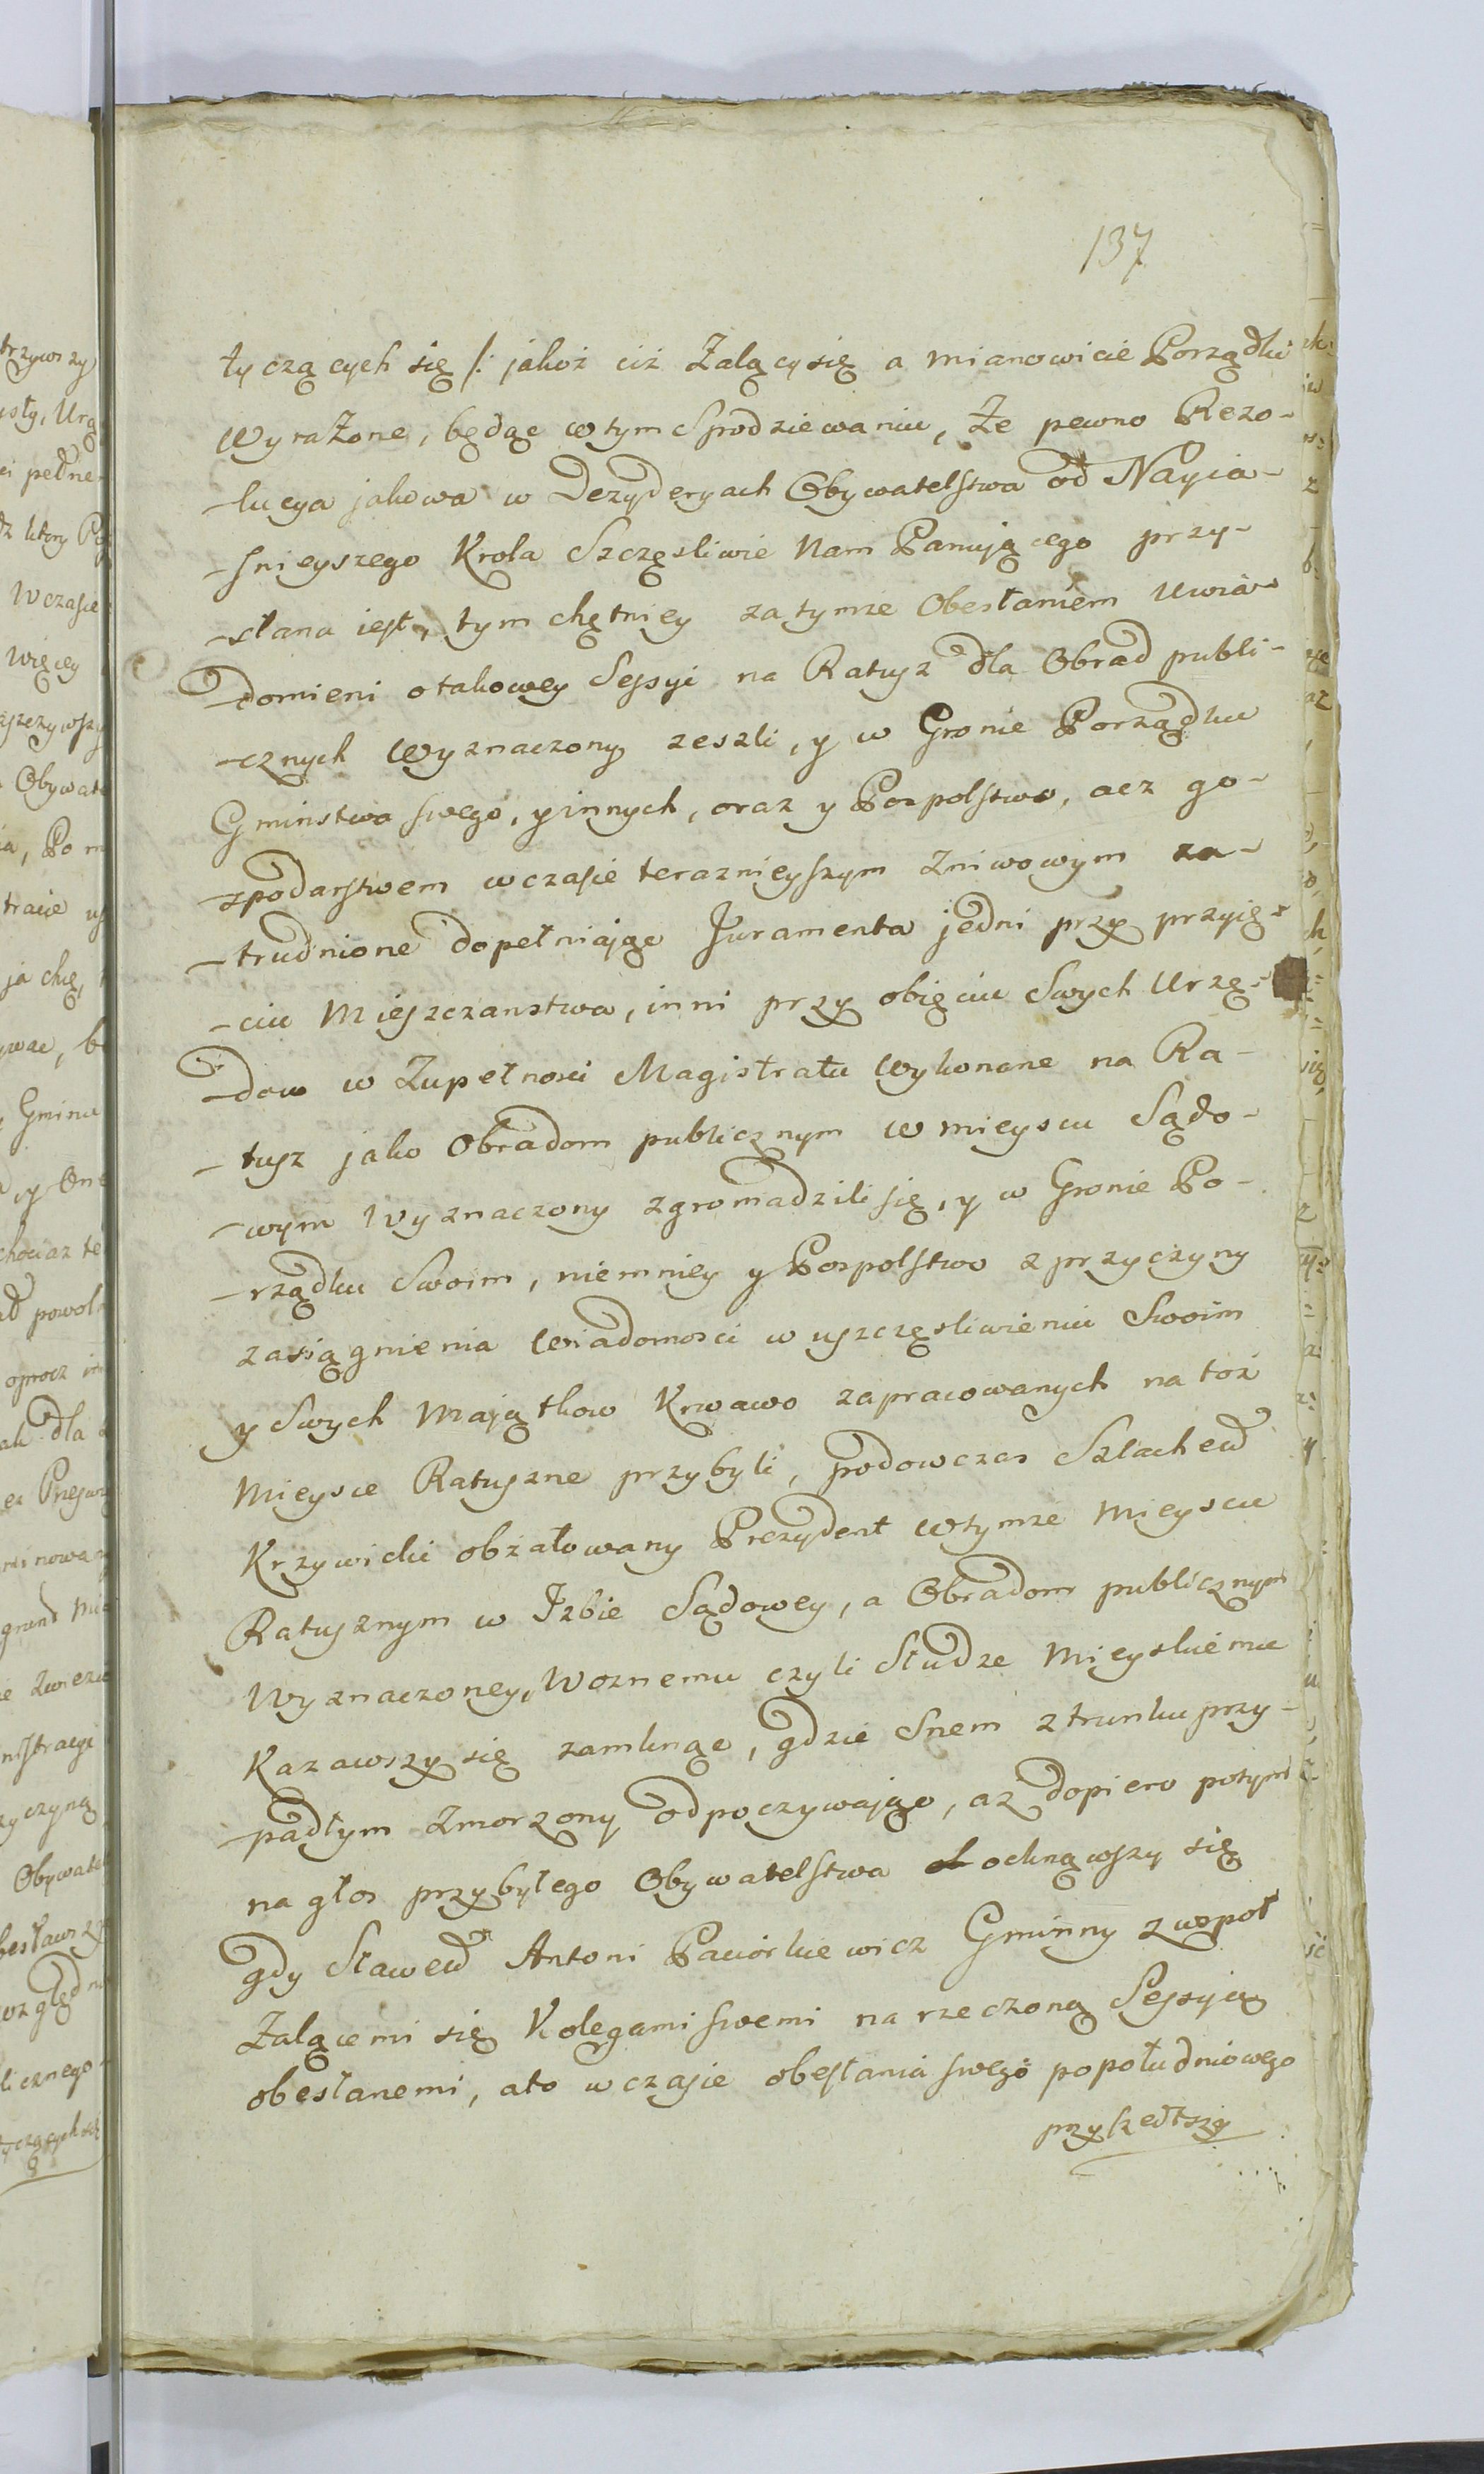 137
tyczących się /: jakoż ciż Zalący się a mianowicie Porządki
wyrażone, będąc w tym Spodziewaniu, że pewno Rezo-
-lucya jakowa w Dezyderyach Obywatelstwa od Nayia-
-snieyszego Krola Szczęsliwie Nam Panującego przy-
-słana iest, tym chętniey za tymże Obesłaniem Uwia-
-domieni o takowey Sessyi na Ratusz dla Obrad publi-
-cznych wyznaczony zeszli, y w Gronie Porządku
Gminstwa swego, y innych, oraz y Pospolstwo, acz go-
-spodarstwem w czasie teraznieyszym Zniwowym za-
-trudnione dopełniając Juramenta jedni przy przyię-
-ciu Mieszczanstwa, inni przy obięciu Swych Urzę-
-dow w Zupełnosci Magistratu wykonane na Ra-
-tusz jako Obradom publicznym w mieyscu Sądo-
-wym Wyznaczony zgromadzili się, y w Gronie Po-
-rządku Swoim, niemniey y Pospolstwo z przyczyny
zasiągnienia wiadomosci w uszczęsliwieniu Swoim
y Swych Mająтkow Krwawo zapracowanych na toż
Mieysce Ratuszne przybyli, podowczas Szlachetd
Krzywicki obżałowany Prezydent w tymże Mieyscu
Ratusznym w Izbie Sądowey, a Obradom publicznym
Wyznaczoney, Woznemu czyli Słudze Mieyskiemu
Kazawszy się zamknąc, gdzie Snem z trunku przy-
-padłym Zmorzony odpoczywając, aż dopiero potym
na głos przybyłego Obywatelstwa ocknąwszy się
gdy Sławetd Antoni Paciorkiewicz Gminny zwspoł
Zalącemi się Kolegami swemi na rzeczoną Sessyią
obesłanemi, a to w czasie obesłania swego popołudniowego
przyszedłszy